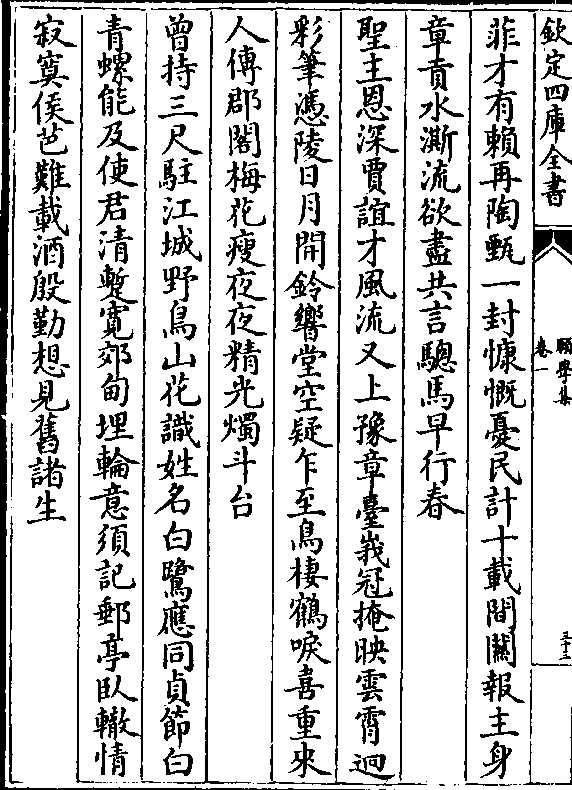 欽定四庫全書
頤學集
卷一
三十三
菲才有賴再陶甄一封慷慨憂民計十載間關報主身
章貢水澌流欲盡共言驄馬早行春
聖主恩深賈誼才風流又上豫章臺峩冠掩映雲霄迥
彩筆憑陵日月開鈴響堂空疑乍至烏棲鶴唳喜重來
人傳郡閣梅花瘦夜夜精光燭斗台
曾持三尺駐江城野鳥山花識姓名白鷺應同貞節白
青螺能及使君清蹔寛郊甸埋輪意須記郵亭臥轍情
寂寞侯芭難載酒殷勤想見舊諸生